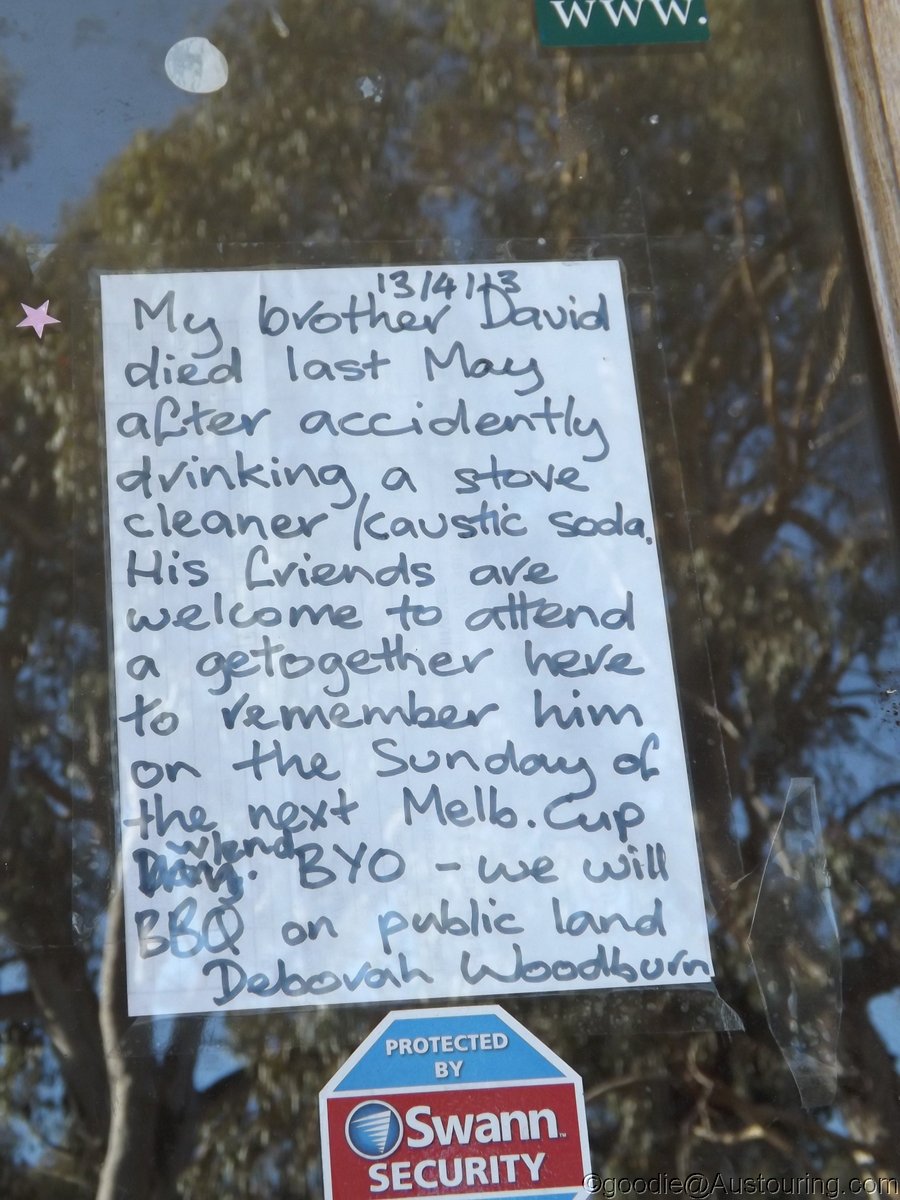 www.
13/4/13
My brother David
died last May
after accidently
drinking a stove
cleaner /caustic soda.
His friends are
welcome to attend
a getogether here
to remember him
on the Sunday of
the next Melb. Cup
w/end
BYO - we will
BBQ on public land
Deborah Woodburn
PROTECTED
BY
Swann™
SECURITY
©goodie@Austouring.com